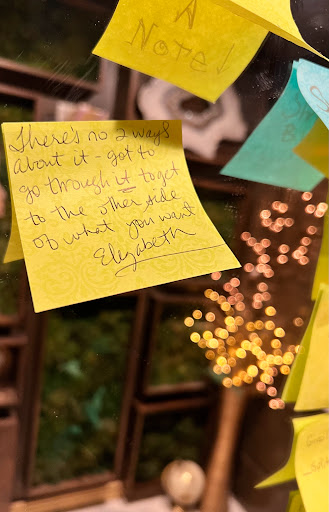 A
Note!
There's no 2 ways
about it - got to
go through it to get
to the other side
of what you want
Elizabeth